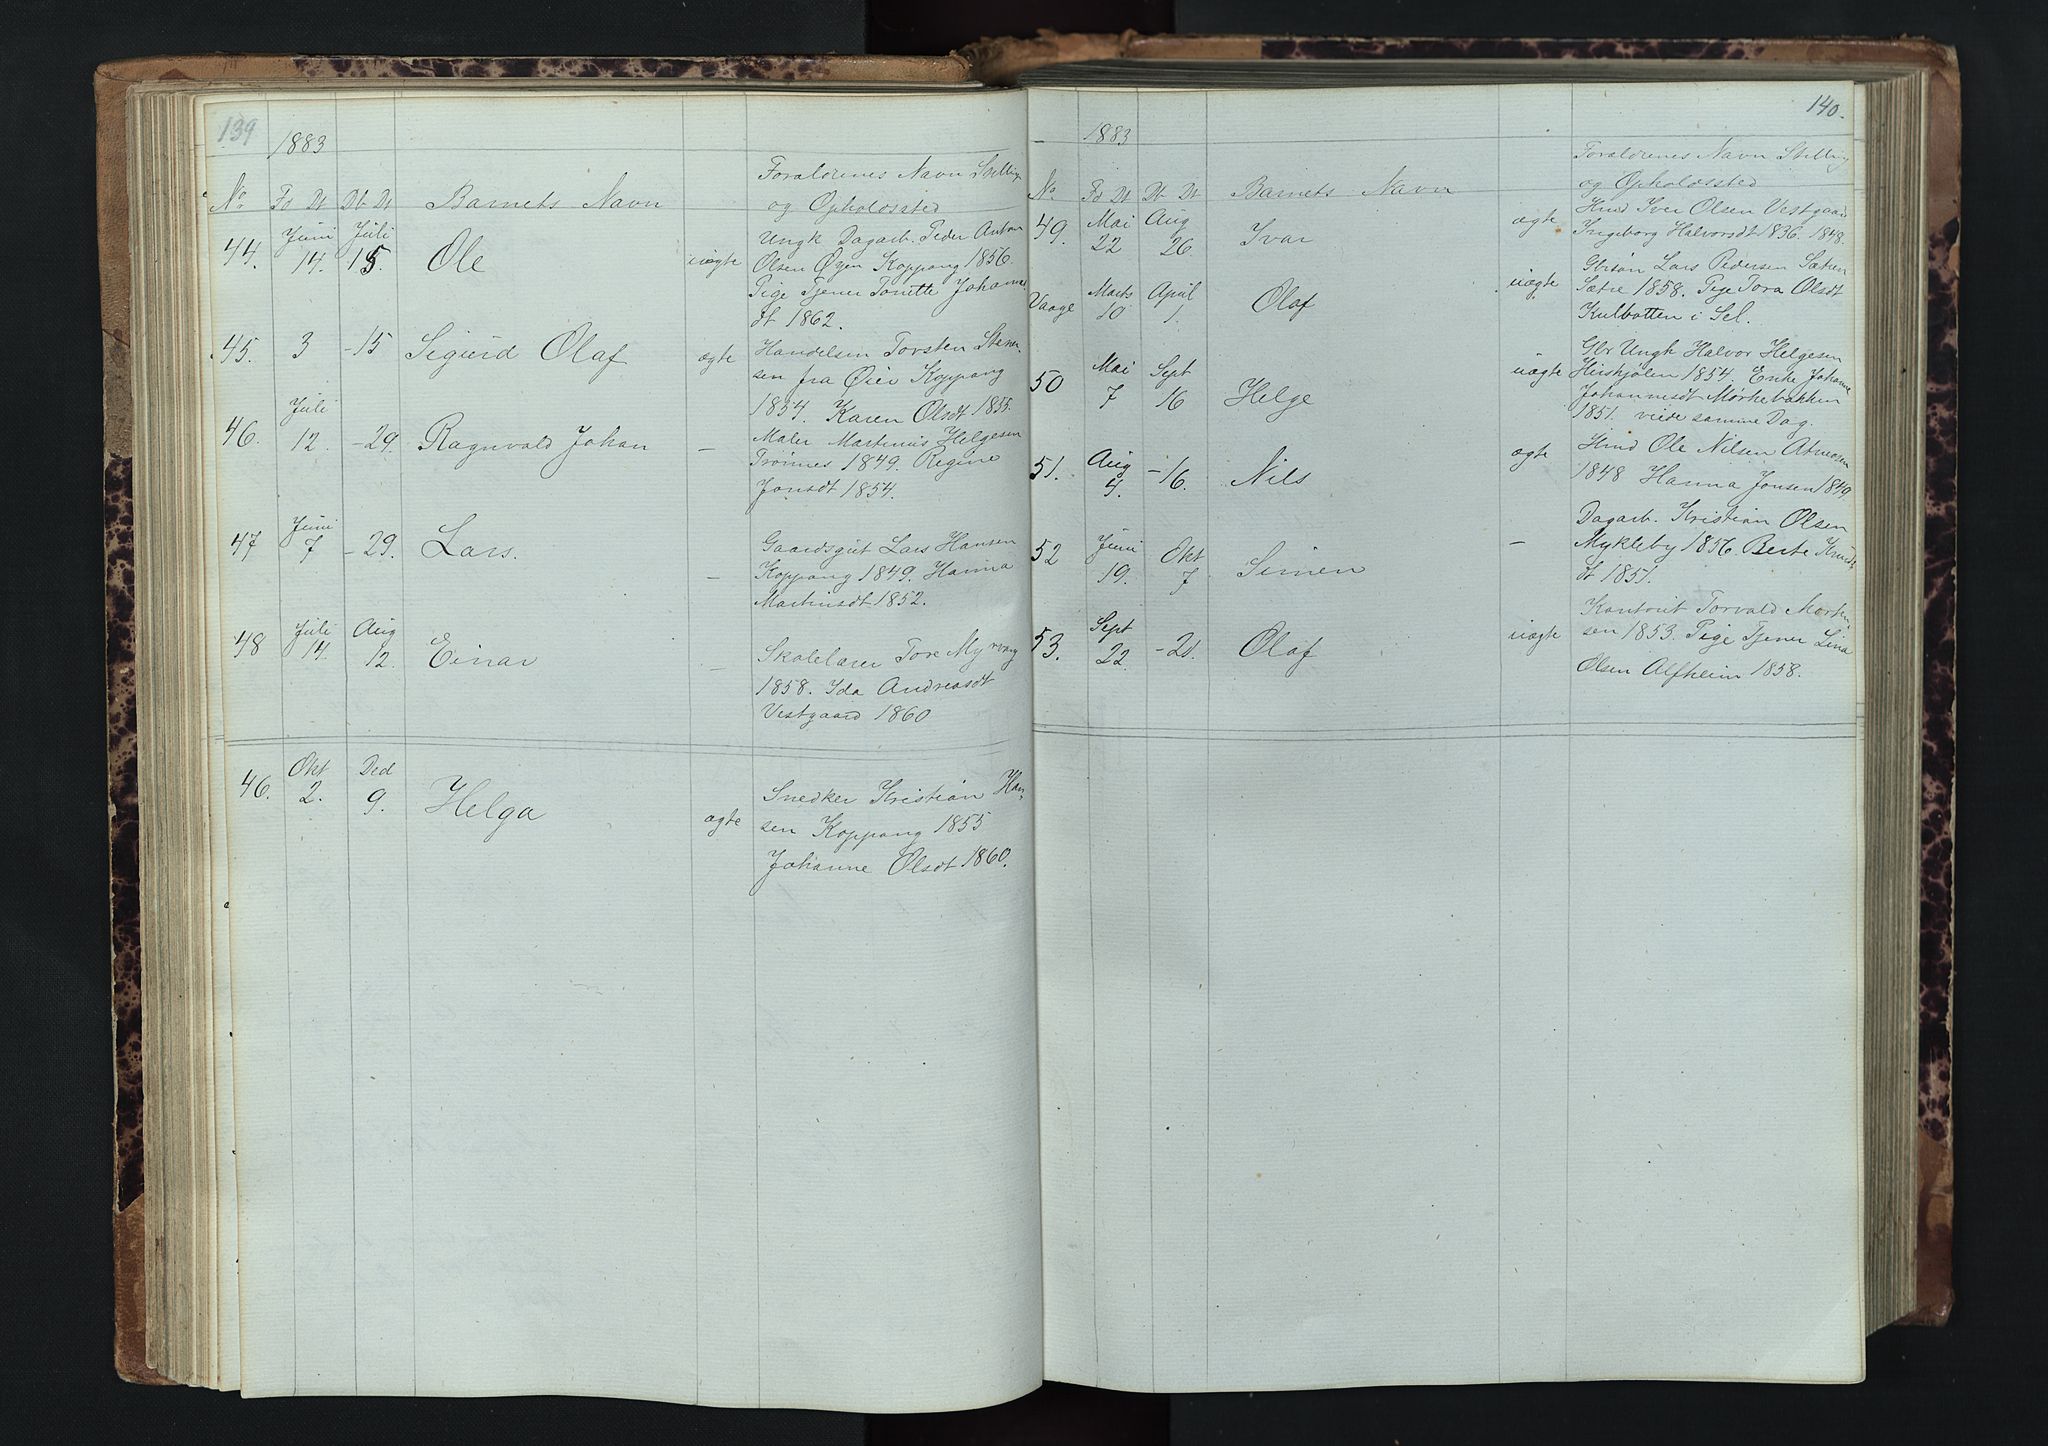 139
1883
No Fd Dt Db Dt Barnets Navn Forældrenes Navn Stilling
og Opholdssted
44. Juni 14. Juli 15. Ole uægte Ungk Dagarb. Peder Anton
Olsen Øyen Koppang 1856.
Pige Tjener Tonette Johanne
dt 1862.
45. 3 - 15 Sigurd Olaf ægte Handelsm Torsten Stener-
sen fra Øier Koppang
1854. Karen Olsdt 1855.
46. Juli 12. - 29. Ragnvald Johan - Maler Martinus Helgesen
Trønnes 1849. Regine
Jonsdt 1854.
47 Juni 7 - 29. Lars. - Gaardsgut Lars Hansen
Koppang 1849. Hanna
Martinsdt 1852.
48 Juli 14. Aug 12. Einar - Skolelærer Tore Myrvang
1858. Ida Andreasdt
Vestgaard 1860
46. Okt 2. Ded 9. Helga ægte Snedker Kristian Han-
sen Koppang 1855
Johanne Olsdt 1860.
140.
1883
No Fd Dt Db Dt Barnets Navn Forældrenes Navn Stilling
og Opholdssted
49. Mai 22 Aug 26. Ivar ægte Hmd Iver Olsen Vestgaard
Ingeborg Halvorsdt 1836. 1848.
Vaage Marts 10 April 1. Olaf uægte Gbrsøn Lars Pedersen Sætren
Sætre 1858. Pige Tora Olsdt
Kulbotten i Sel.
50 Mai 7 Sept 16 Helge uægte Gbr Ungk Halvor Helgesen
Hirskjølen 1854. Enke Johanne
Johannesdt Mørkebakken
1851. viede samme Dag.
51. Aug 4. - 16. Nils ægte Hmd Ole Nilsen Atneosen
1848 Hanna Jonsen 1849.
52 Juni 19. Okt 7 Simen - Dagarb. Kristian Olsen
Mykleby 1856. Berte Knuds-
dt 1851.
53. Sept 22. - 21. Olaf uægte Kontorist Torvald Morten-
sen 1853. Pige Tjener Lina
Olsen Alfheim 1858.